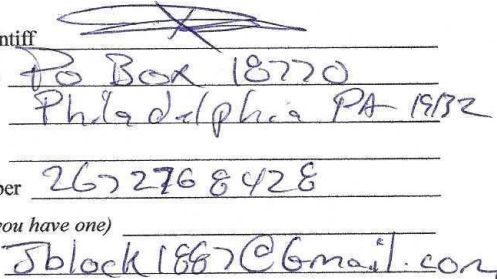 ntiff
Po Box 18770
Philadelphia PA 19132
ber 2672768428
you have one)
Jblock1887@Gmail.com